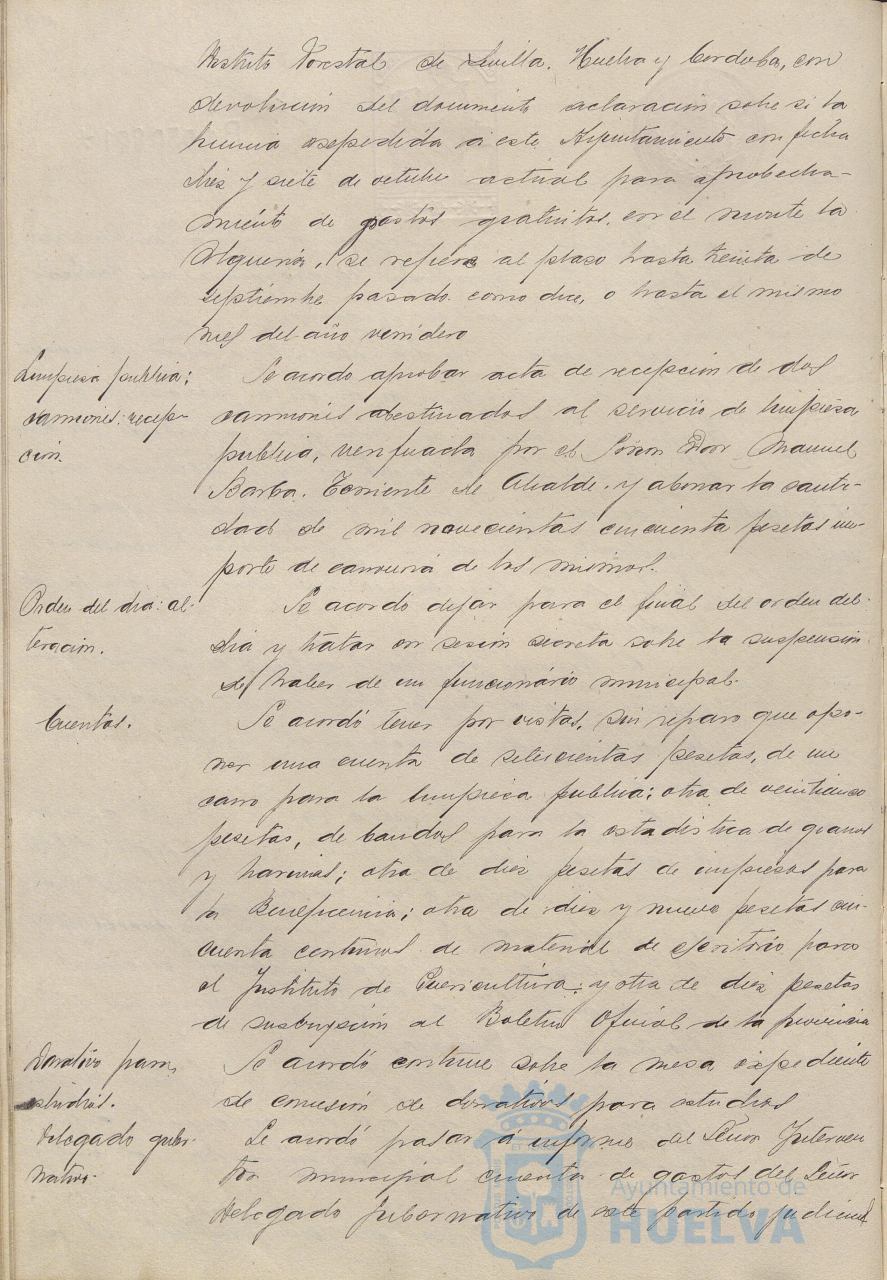 Distrito Forestal de Sevilla. Huelva y Cordoba, con
devolucion del documento aclaracion sobre si la
licencia expedida a este Ayuntamiento con fecha
diez y siete de octubre actual para aprobecha-
miento de pastos gratuitos, en el monte la
Alqueria, se refiere al plaso hasta treinta de
septiembre pasado como dice, o hasta el mismo
mes del año venidero
Limpiesa publica;
camiones: recep-
cion.
Se acordo aprobar acta de recepcion de dos
camiones destinados al servicio de limpiesa
publica, verificada por el Señor Don Manuel
Barba. Teniente de Alcalde. y abonar la canti-
dad de mil novecientas cincuenta pesetas im-
porte de de los mismos.
Orden del dia: al-
teracion.
Se acordo dejar para el final del orden del
dia y tratar en sesion secreta sobre la suspension
de haber de un funcionario municipal.
Cuentas.
Se acordó tener por vistas, sin reparo que opo-
ner una cuenta de setecientas pesetas, de un
carro para la limpiesa publica; otra de veinticinco
pesetas, de bandos para la estadistica de granos
y harinas; otra de diez pesetas de impresos para
la Beneficencia; otra de diez y nueve pesetas cin-
cuenta centimos de material de escritorio para
el Instituto de Puericultura; y otra de diez pesetas
de suscripción al Boletin Oficial de la provincia
Donativo para
estudios.
Se acordó continue sobre la mesa expediente
de concesión de donativos para estudios
Delegado guber-
nativo.
Se acordó pasar á informe del Señor Interven
tor municipal cuenta de gastos del Señor
Delegado Gubernativo de este partido judicial
Ayuntamiento de
HUELVA